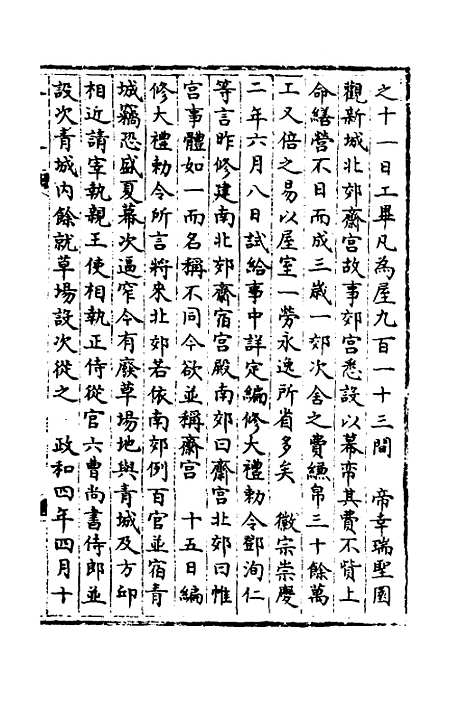 之十一日工畢凡為屋九百一十三間　帝幸瑞聖園
觀新城北郊齋宮故事郊宮悉設以幕帟其費不貲上
命繕營不日而成三歲一郊次舍之費縑帛三十餘萬
工又倍之易以屋室一勞永逸所省多矣　徽宗崇慶
二年六月八日試給事中詳定編修大禮勅令鄧洵仁
等言昨修建南北郊齋宿宮殿南郊曰齋宮北郊曰帷
宮事體如一而名稱不同今欲並稱齋宮　十五日編
修大禮勅令所言將來北郊若依南郊例百官並宿青
城竊恐盛夏幕次逼窄今有廢草場地與青城及方邱
相近請宰執親王使相執正侍從官六曹尚書侍郎並
設次青城內餘就草場設次從之　政和四年四月十